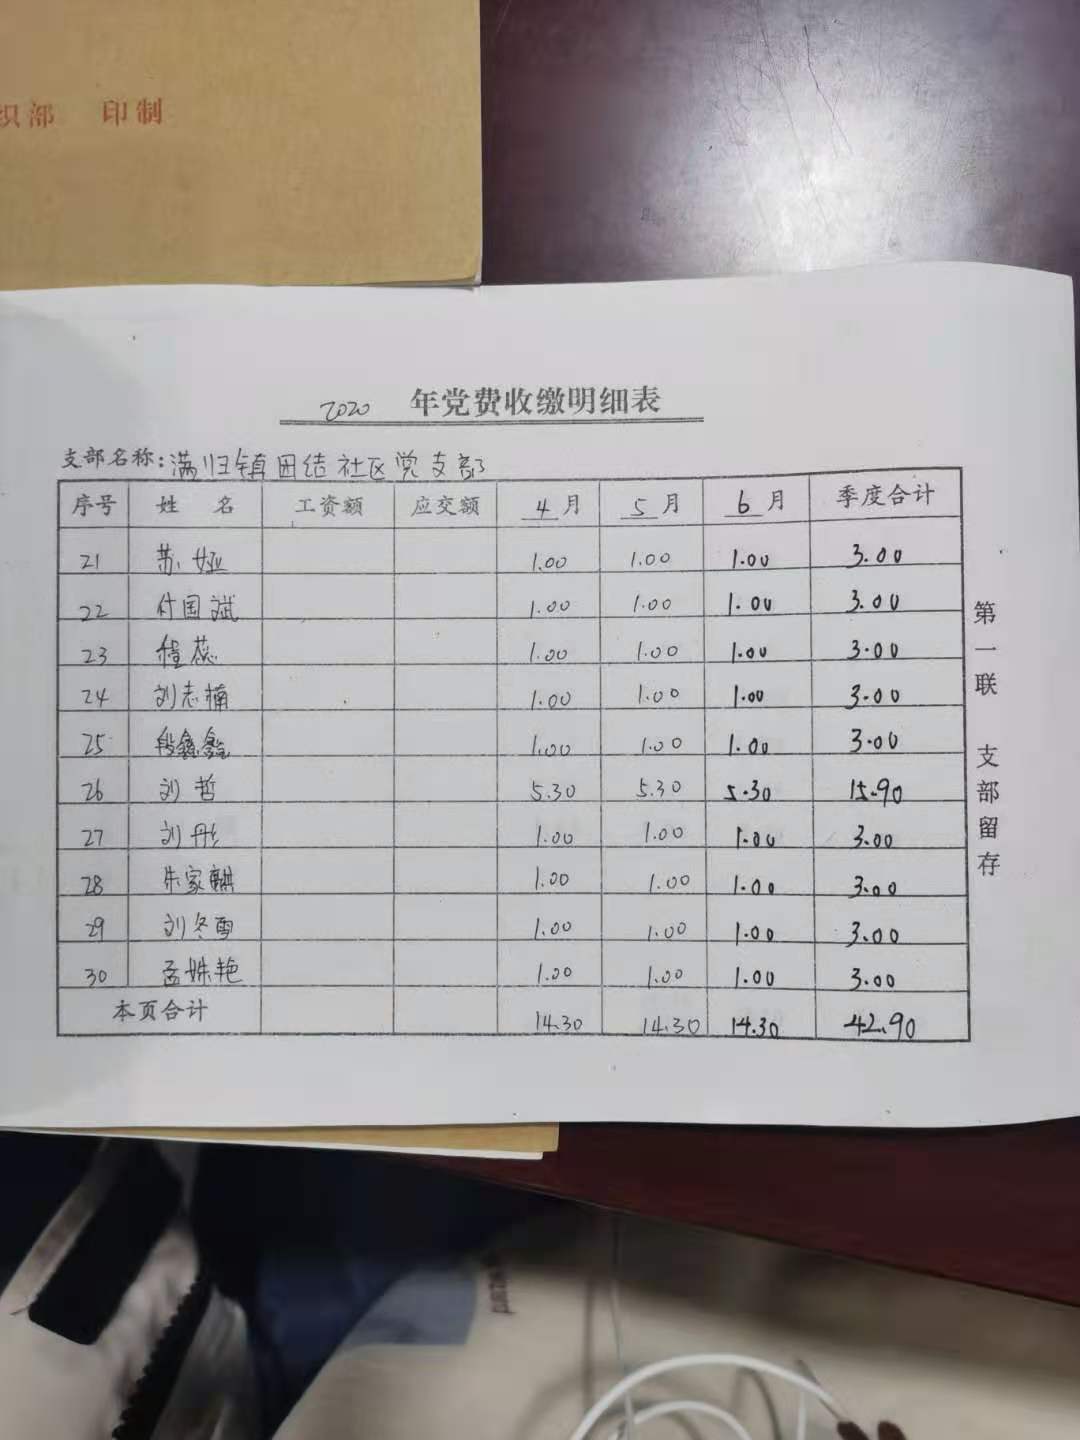 织部 印制
2020 年党费收缴明细表
支部名称:满归镇团结社区党支部
序号 姓 名 工资额 应交额 4月 5月 6月 季度合计
21 苏娅 1.00 1.00 1.00 3.00
22 付国斌 1.00 1.00 1.00 3.00
23 程蕊 1.00 1.00 1.00 3.00
24 刘志楠 1.00 1.00 1.00 3.00
25 段鑫鑫 1.00 1.00 1.00 3.00
26 刘哲 5.30 5.30 5.30 15.90
27 刘彤 1.00 1.00 1.00 3.00
28 朱家麒 1.00 1.00 1.00 3.00
29 刘冬雪 1.00 1.00 1.00 3.00
30 孟姝艳 1.00 1.00 1.00 3.00
本页合计 14.30 14.30 14.30 42.90
第一联 支部留存